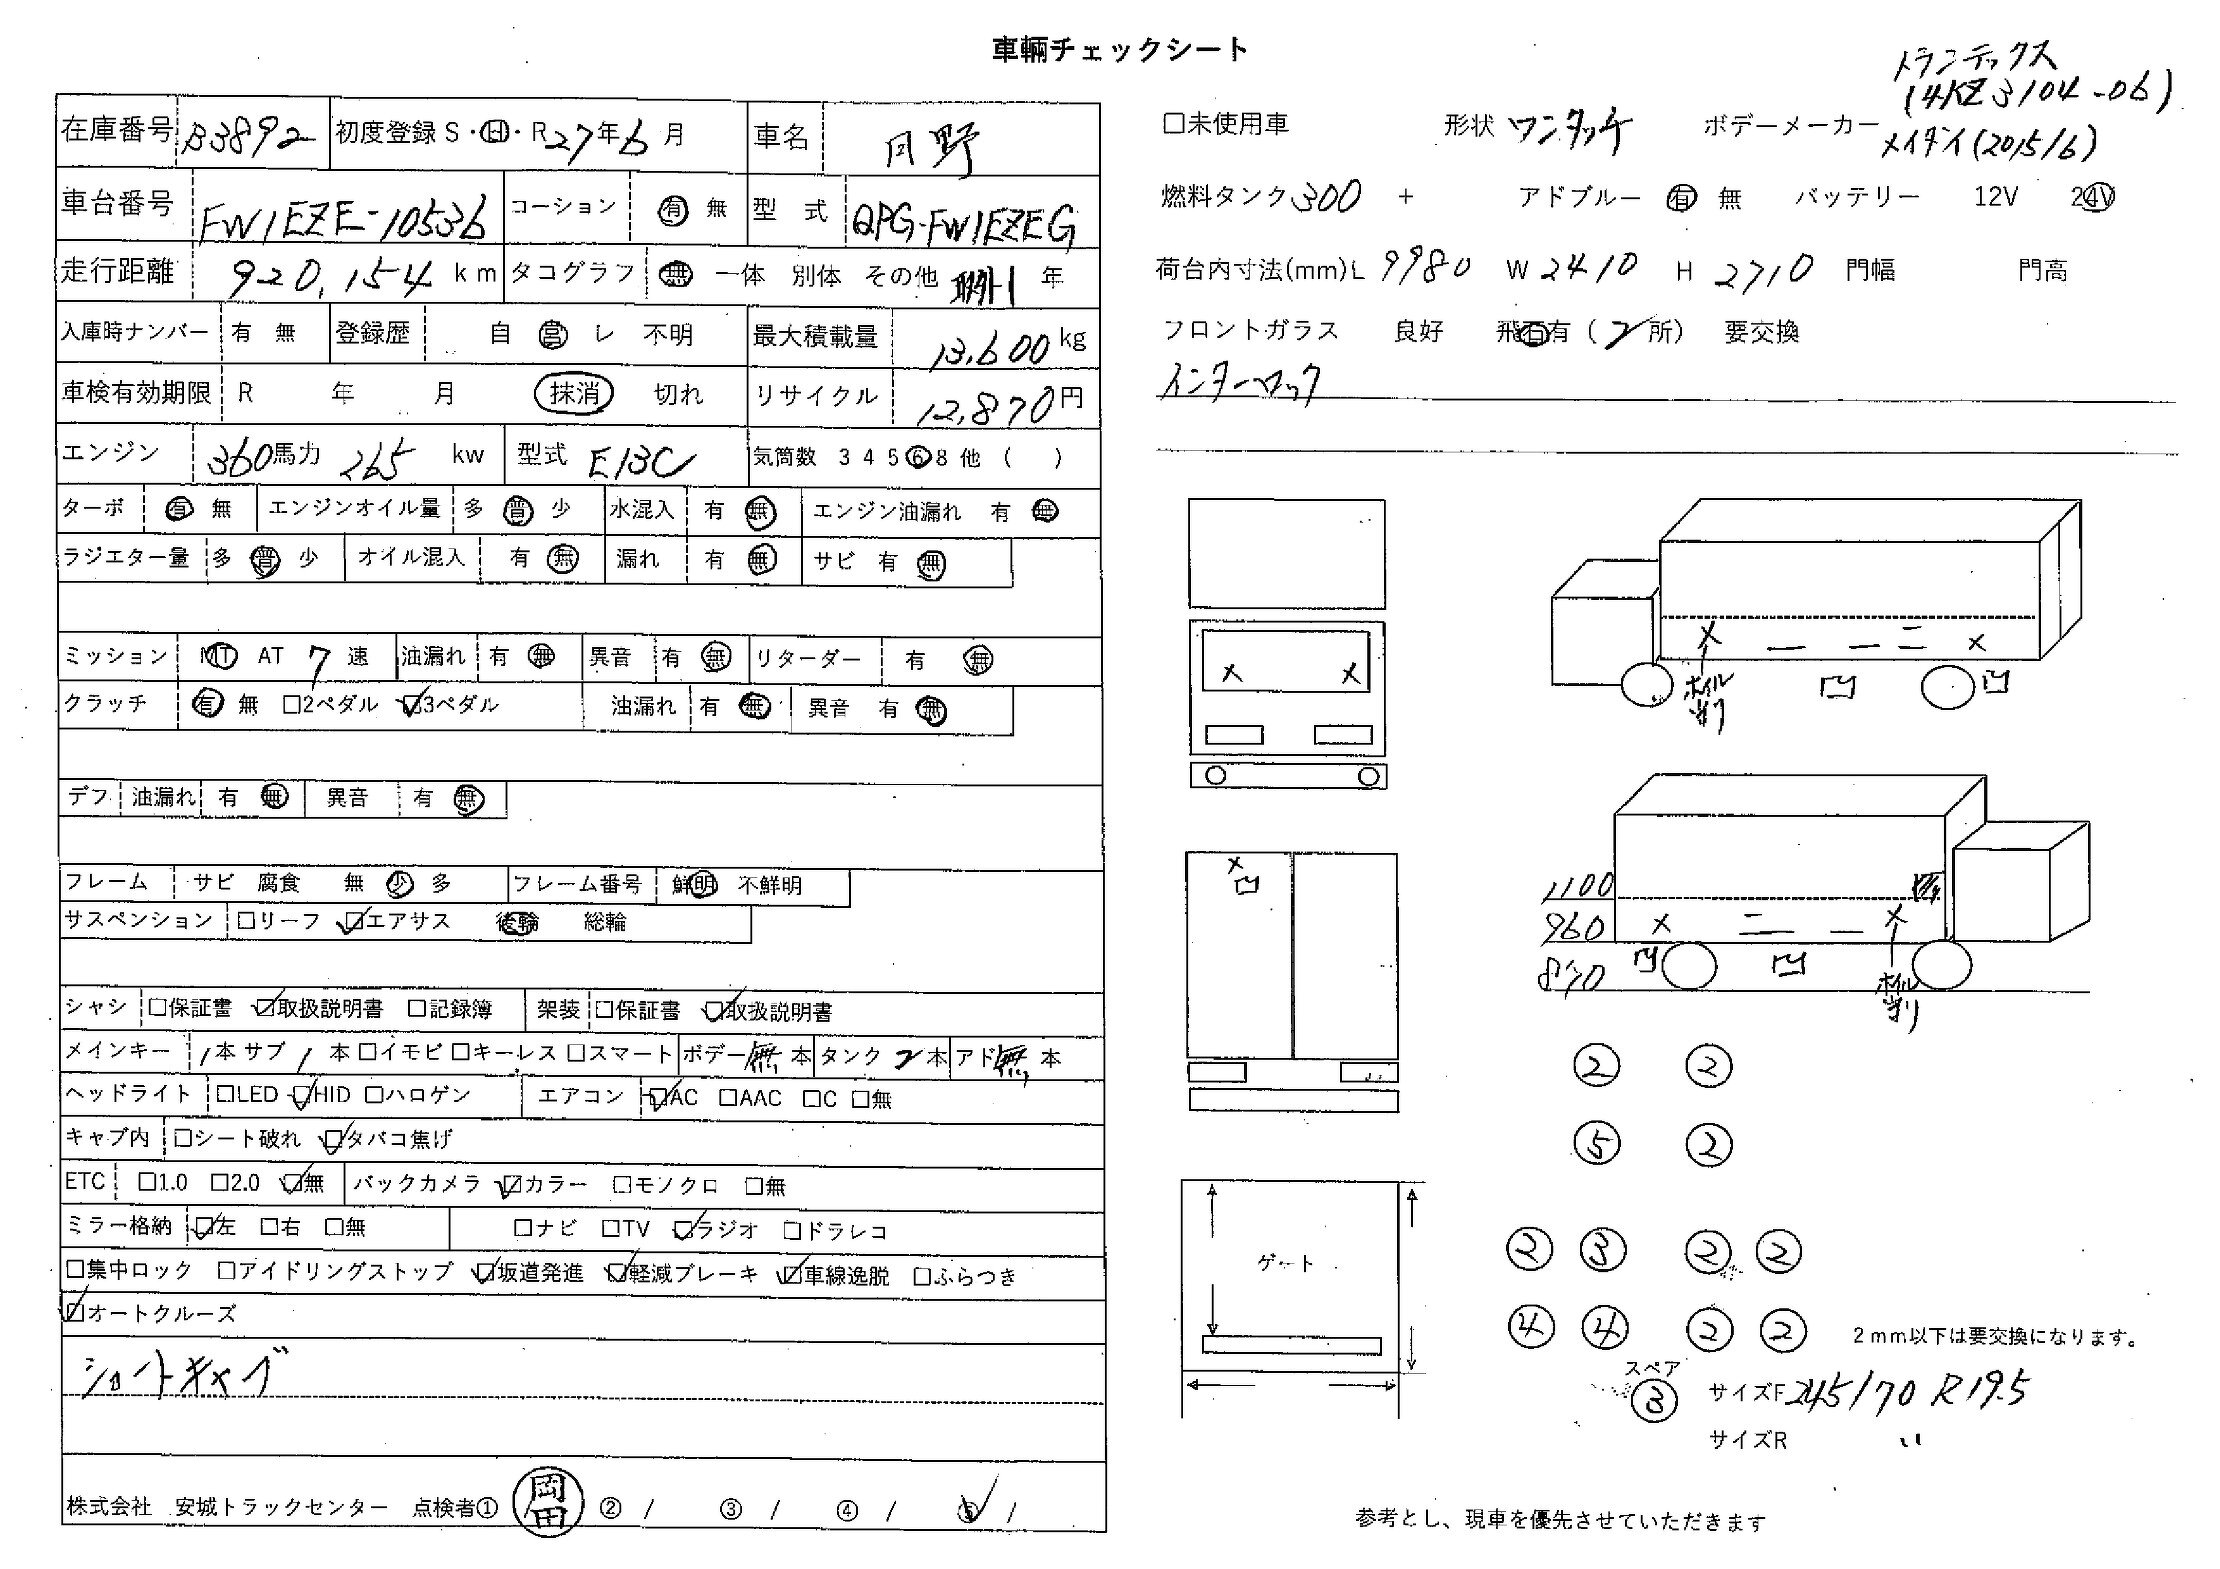 車輌チェックシート
トランテックス
(4KZ3104-06)
在庫番号 B3892 初度登録 S・H・R 27年6月 車名 日野
□未使用車 形状 ワンタッチ ボデーメーカー メイダイ(2015/6)
車台番号 FW1EZE-10536 コーション 有 無 型 式 QPG-FW1EZEG
燃料タンク 300 + アドブルー 有 無 バッテリー 12V 24V
走行距離 920,154 km タコグラフ 無 一体 別体 その他 年
荷台内寸法(mm) L 9980 W 2410 H 2710 門幅 門高
入庫時ナンバー 有 無 登録歴 自 営 レ 不明 最大積載量 13,600 kg
フロントガラス 良好 飛石有 ( 2 所) 要交換
車検有効期限 R 年 月 抹消 切れ リサイクル 12,870円
インターロック
エンジン 360馬力 265 kw 型式 E13C 気筒数 3 4 5 6 8 他 ( )
ターボ 有 無 エンジンオイル量 多 普 少 水混入 有 無 エンジン油漏れ 有 無
ラジエター量 多 普 少 オイル混入 有 無 漏れ 有 無 サビ 有 無
ミッション MT AT 7 速 油漏れ 有 無 異音 有 無 リターダー 有 無
クラッチ 有 無 □2ペダル ☑3ペダル 油漏れ 有 無 異音 有 無
デフ 油漏れ 有 無 異音 有 無
フレーム サビ 腐食 無 少 多 フレーム番号 鮮明 不鮮明
サスペンション □リーフ ☑エアサス 後輪 総輪
シャシ □保証書 ☑取扱説明書 □記録簿 架装 □保証書 ☑取扱説明書
メインキー 1本 サブ 1 本 □イモビ □キーレス □スマート ボデー 無 本 タンク 2 本 アド 無 本
ヘッドライト □LED ☑HID □ハロゲン エアコン ☑AC □AAC □C □無
キャブ内 □シート破れ ☑タバコ焦げ
ETC □1.0 □2.0 ☑無 バックカメラ ☑カラー □モノクロ □無
ミラー格納 ☑左 □右 □無 □ナビ □TV ☑ラジオ □ドラレコ
□集中ロック □アイドリングストップ ☑坂道発進 ☑軽減ブレーキ ☑車線逸脱 □ふらつき
☑オートクルーズ
ショートキャブ
株式会社 安城トラックセンター 点検者① 岡田 ② / ③ / ④ / ⑤ /
× ×
× ー ー 二 ×
凹 凹
×
凹
1100
960 × 二 ー ×
870 凹 凹
② ②
⑤ ②
② ③ ② ②
ゲート
④ ④ ② ② 2mm以下は要交換になります。
スペア
③ サイズF 245/70 R19.5
サイズR 〃
参考とし、現車を優先させていただきます